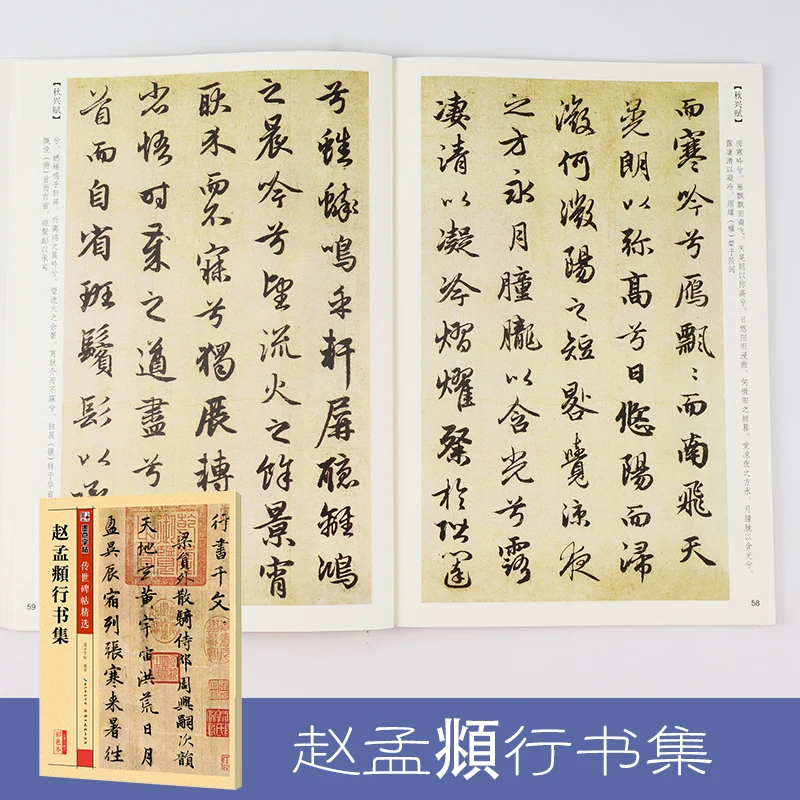 【秋兴赋】
而寒吟兮。雁飘飘而南飞。天晃朗以弥高兮。日悠阳而浸微。何微阳之短晷。觉凉夜之方永。月朣胧以含光兮。
露凄清以凝冷。熠熠（耀）粲于阶闼
而寒吟兮鴈飄〻而南飛天
晃朗以弥高兮日悠陽而浸
微何微陽之短晷覺涼夜
之方永月朣朧以含光兮露
凄清以凝冷熠燿粲於階闥
58
兮蟋蟀鳴乎軒屏聽離鴻
之晨吟兮望流火之餘景宵
耿介而不寐兮獨展轉
省悟时歲之遒盡兮
首而自省班鬢髟以承
【秋兴赋】
兮。蟋蟀鸣乎轩屏。听离鸿之晨吟兮。望流火之余景。宵耿介而不寐兮。独展（辗）转于华省
慨俛（俯）首而自省。斑鬓髟以承
59
墨点字帖
传世碑帖精选
赵孟頫行书集
彩色本
行書千文
梁員外散騎侍郎周興嗣次韻
天地玄黃宇宙洪荒日月
盈昃辰宿列張寒来暑往
赵孟頫行书集